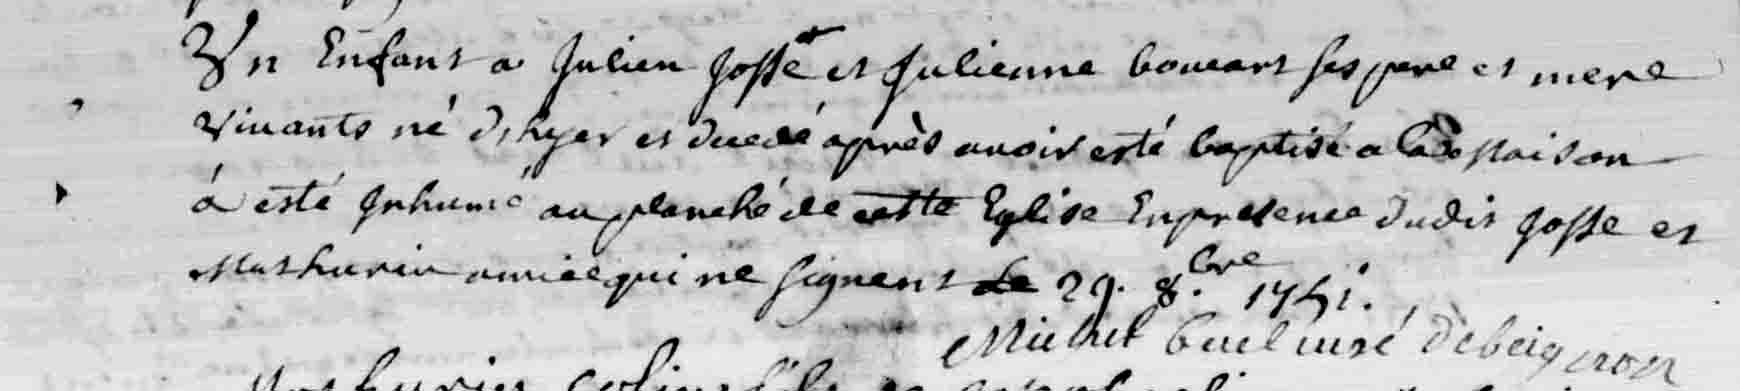 Vn Enfant a Julien Josse et Julienne boucart ses pere et mere
vivants né d'hyer et decedé après avoir esté baptisé a la maison
á esté Jnhumé au planché de cette Eglise En presence dudit Josse et
Mathurin qui ne signent le 29. 8.bre 1751.
Michel curé
Mathurin